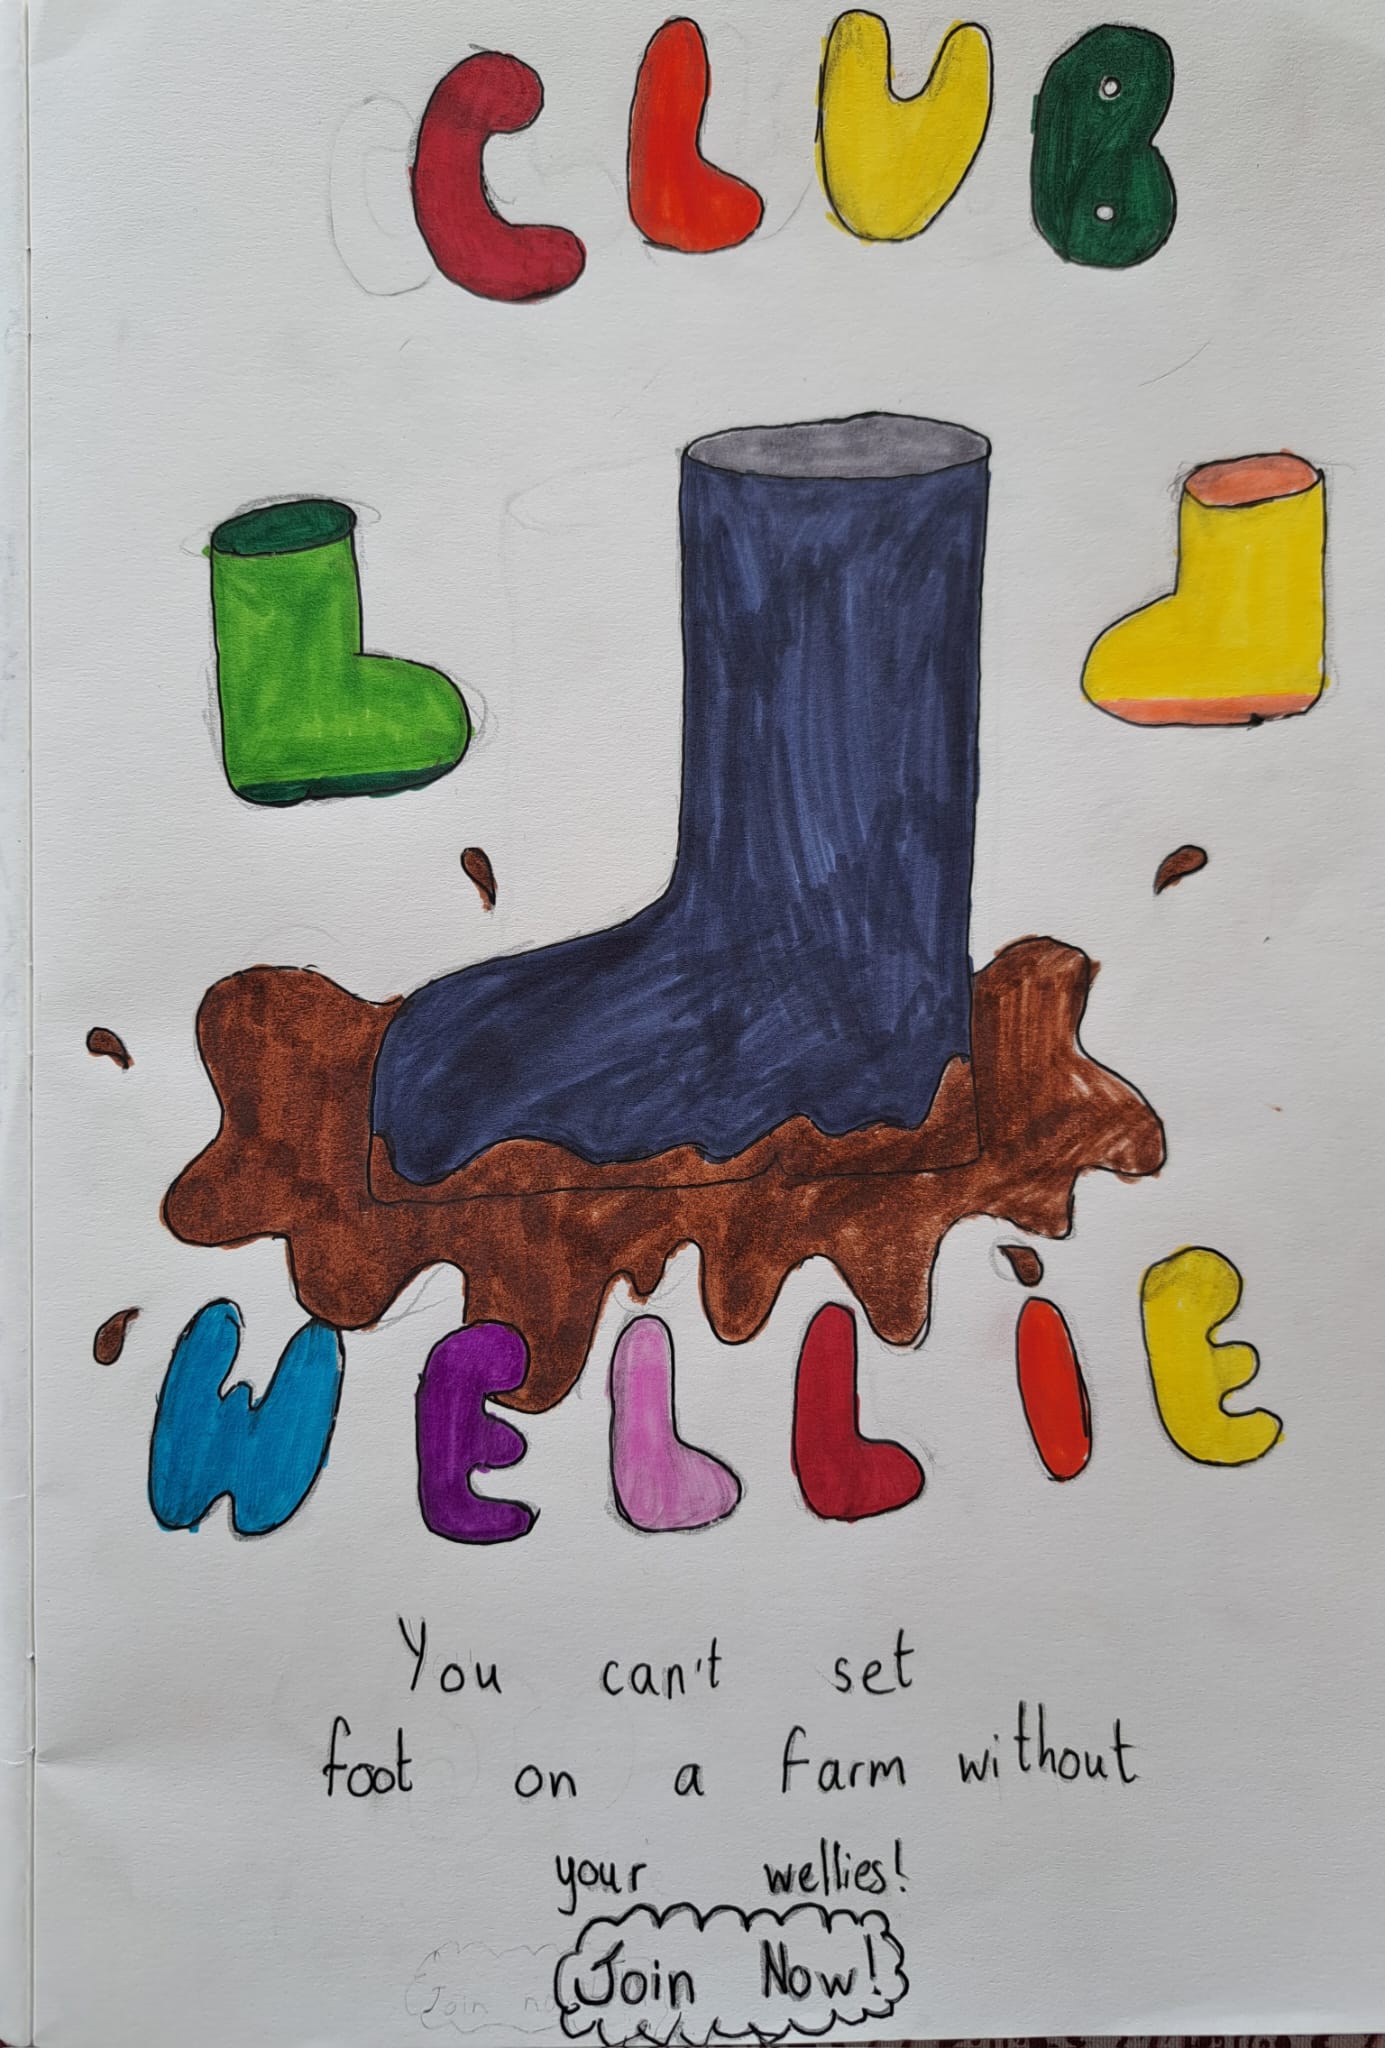 CLUB
WELLIE
You can't set
foot on a farm without
your wellies!
Join Now!
Join no